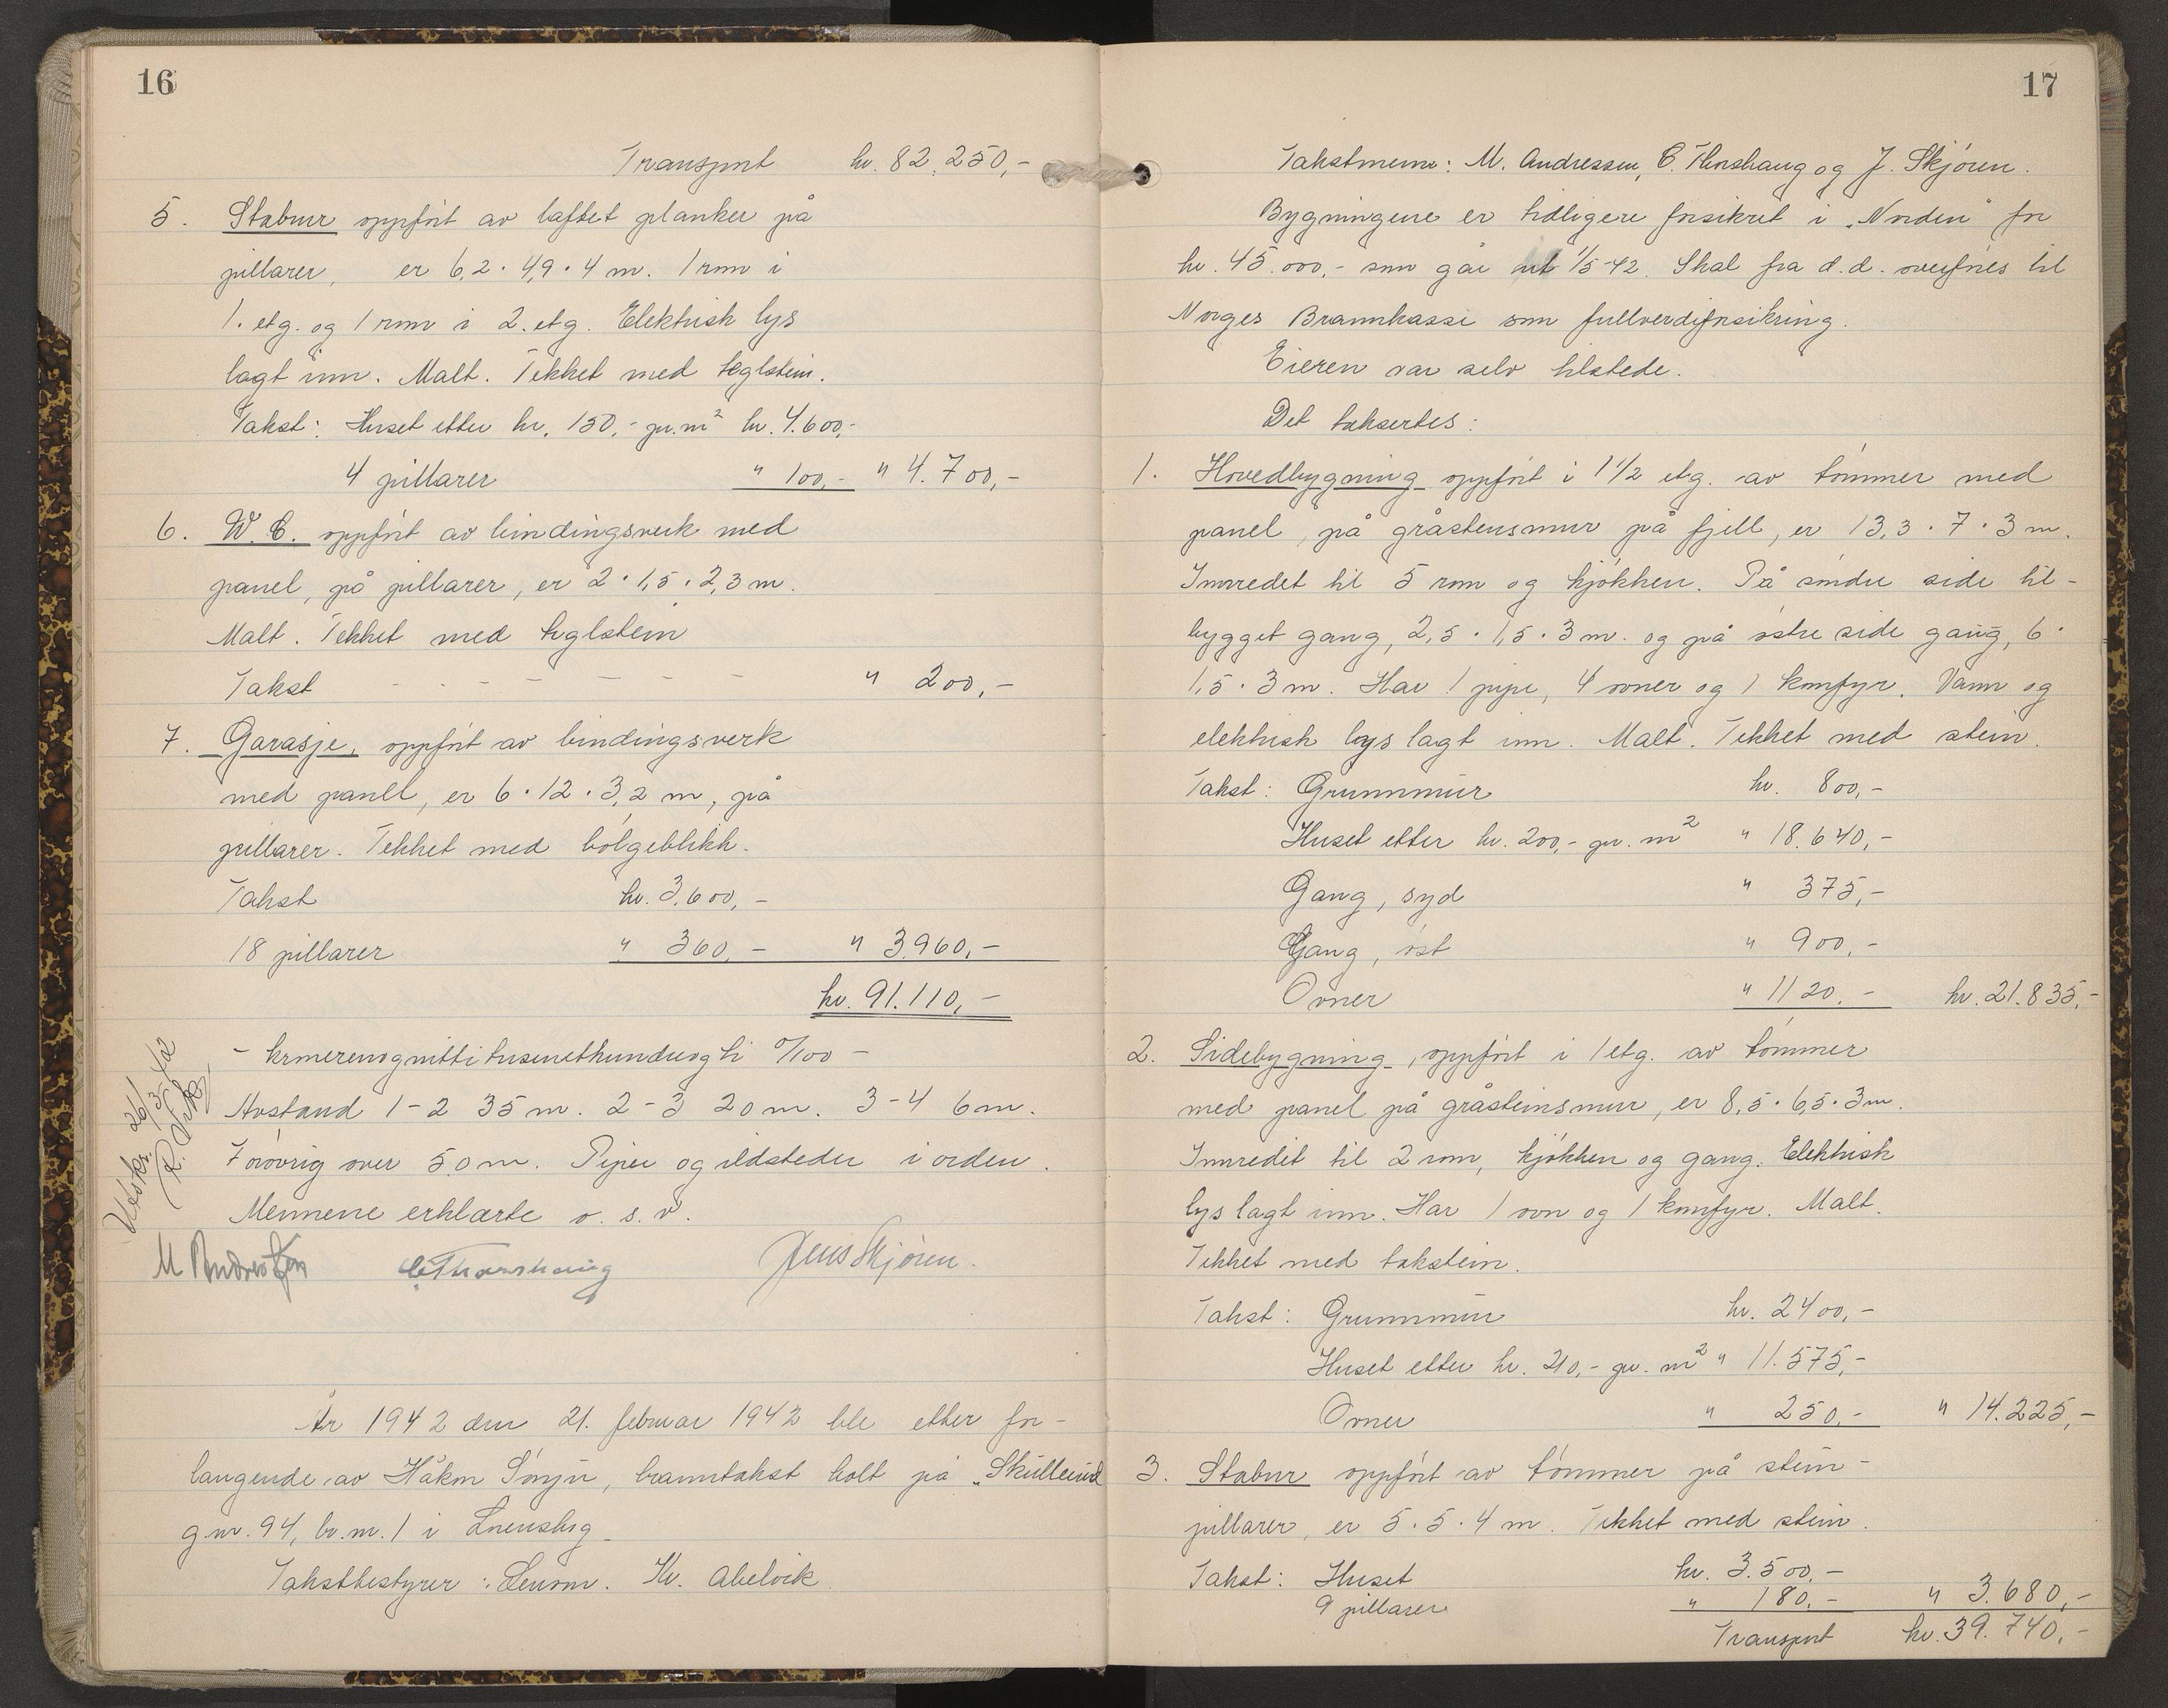 16
Transport kr. 82.250,-
5. Stabur oppført av laftet planker på
pillarer, er 6,2 · 4,9 · 4 m. 1 rom i
1. etg. og 1 rom i 2. etg. Elektrisk lys
lagt inn. Malt. Tekket med teglstein.
Takst: Huset etter kr. 150,- pr. m² kr. 4.600,-
4 pillarer " 100,- " 4.700,-
6. W.C. oppført av bindingsverk med
panel, på pillarer, er 2 · 1,5 · 2,3 m.
Malt. Tekket med teglstein
Takst - - - - - - - " 200,-
7. Garasje, oppført av bindingsverk
med panel, er 6 · 12 · 3,2 m, på
pillarer. Tekket med bølgeblikk.
Takst kr. 3.600,-
18 pillarer " 360,- " 3.960,-
kr. 91.110,-
- kronerenognitti tusenethundreogti 0/100 -
Avstand 1-2 35 m. 2-3 20 m. 3-4 6 m.
Forøvrig over 50 m. Piper og ildsteder i orden.
Mennene erklærte o. s. v.
Utskr. 26/3-42
M Andresen C. Thorshaug Jens Skjøren.
År 1942 den 21. februar 1942 ble etter for-
langende av Håkon Sørjn, branntakst holt på „Skullerud
g.nr. 94, br.nr. 1 i Lørenskog
Takstbestyrer: Lensm. Kr. Abelvik
17
Takstmenn: M. Andressen, C. Thorshaug og J. Skjøren.
Bygningene er tidligere forsikret i „Norden" for
kr. 45.000,- som går ut 1/5-42. Skal fra d.d. overføres til
Norges Brannkasse som fullverdiforsikring.
Eieren var selv tilstede.
Det taksertes:
1. Hovedbygning oppført i 1 1/2 etg. av tømmer med
panel, på gråstensmur på fjell, er 13,3 · 7 · 3 m.
Innredet til 5 rom og kjøkken. På søndre side til-
bygget gang, 2,5 · 1,5 · 3 m. og på østre side gang, 6 ·
1,5 · 3 m. Har 1 pipe, 4 ovner og 1 komfyr. Vann og
elektrisk lys lagt inn. Malt. Tekket med stein.
Takst: Grunnmur kr. 800,-
Huset etter kr. 200,- pr. m² " 18.640,-
Gang, syd " 375,-
Gang, øst " 900,-
Ovner " 1120,- kr. 21.835,-
2. Sidebygning, oppført i 1 etg. av tømmer
med panel på gråsteinsmur, er 8,5 · 6,5 · 3 m.
Innredet til 2 rom, kjøkken og gang. Elektrisk
lys lagt inn. Har 1 ovn og 1 komfyr. Malt.
Tekket med takstein.
Takst: Grunnmur kr. 2400,-
Huset etter kr. 210,- pr. m² " 11.575,-
Ovner " 250,- " 14.225,-
3. Stabur oppført av tømmer på stein-
pillarer, er 5 · 5 · 4 m. Tekket med stein.
Takst: Huset kr. 3.500,-
9 pillarer " 180,- " 3.680,-
Transport kr. 39.740,-